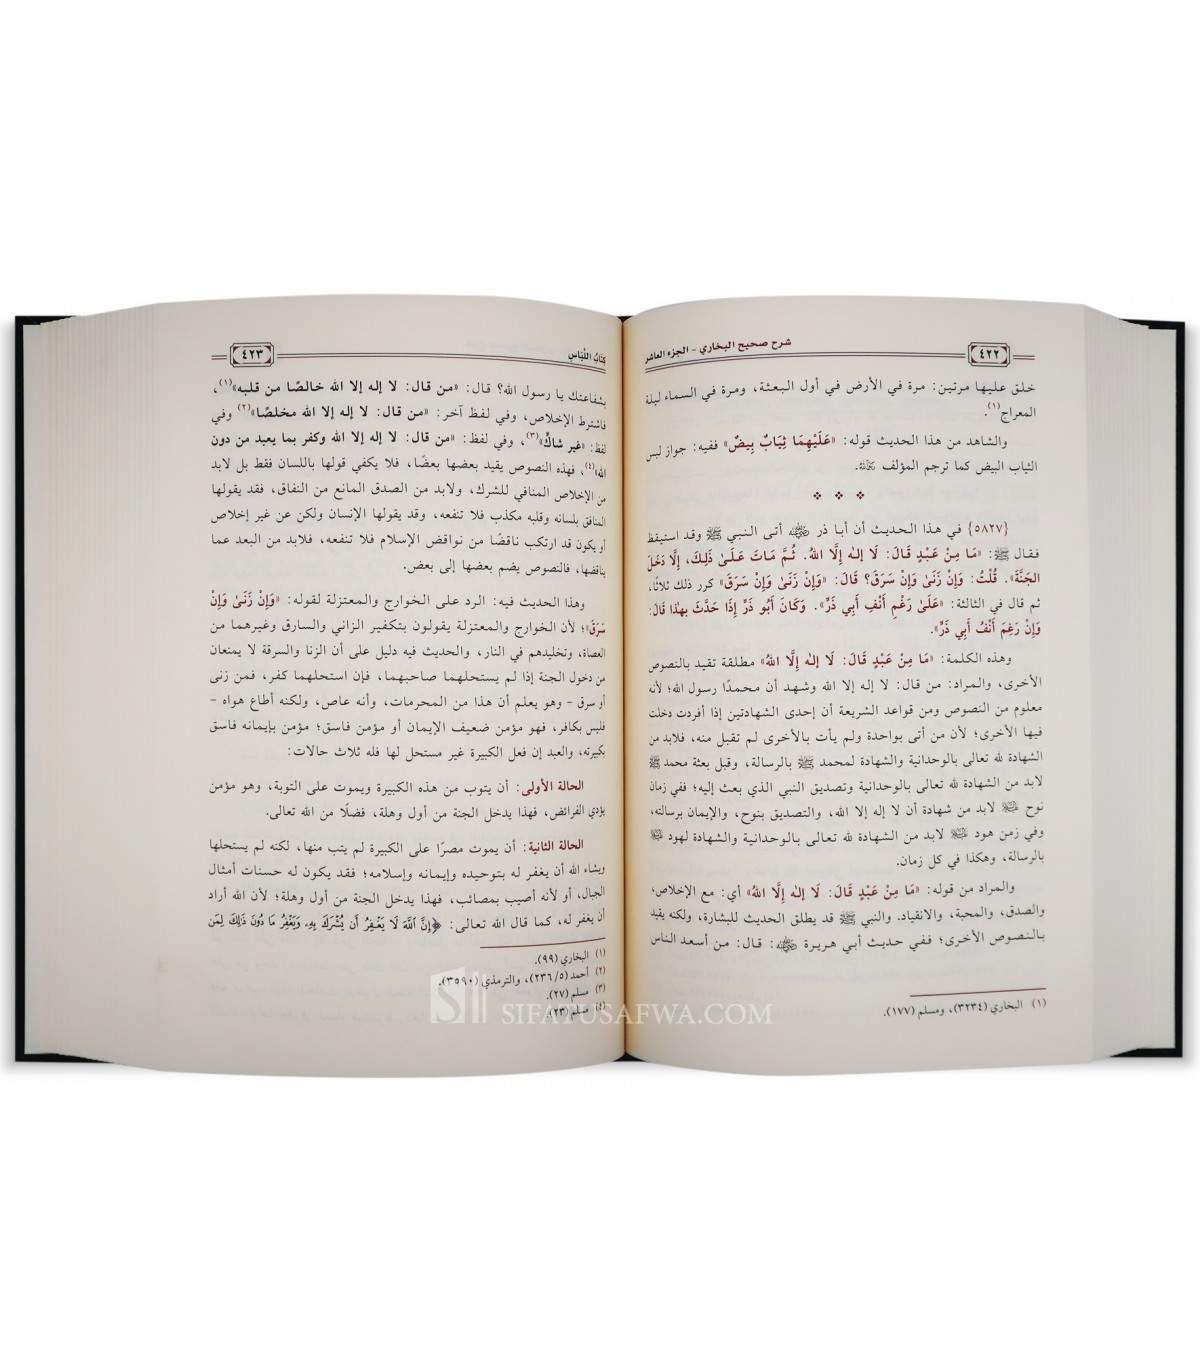 ٤٢٢
شرح صحيح البخاري - الجزء العاشر
خلق عليها مرتين: مرة في الأرض في أول البعثة، ومرة في السماء ليلة
المعراج(١).
والشاهد من هذا الحديث قوله: «عَلَيْهِمَا ثِيَابٌ بِيضٌ» ففيه: جواز لبس
الثياب البيض كما ترجم المؤلف رحمه الله.
{٥٨٢٧} في هذا الحديث أن أبا ذر رضي الله عنه أتى النبي ﷺ وقد استيقظ
فقال ﷺ: «مَا مِنْ عَبْدٍ قَالَ: لَا إِلٰهَ إِلَّا اللهُ. ثُمَّ مَاتَ عَلَىٰ ذَلِكَ، إِلَّا دَخَلَ
الجَنَّةَ». قُلْتُ: وَإِنْ زَنَىٰ وَإِنْ سَرَقَ؟ قَالَ: «وَإِنْ زَنَىٰ وَإِنْ سَرَقَ» كرر ذلك ثلاثًا،
ثم قال في الثالثة: «عَلَىٰ رَغْمِ أَنْفِ أَبِي ذَرٍّ». وَكَانَ أَبُو ذَرٍّ إِذَا حَدَّثَ بِهٰذَا قَالَ:
وَإِنْ رَغِمَ أَنْفُ أَبِي ذَرٍّ».
وهذه الكلمة: «مَا مِنْ عَبْدٍ قَالَ: لَا إِلٰهَ إِلَّا اللهُ» مطلقة تقيد بالنصوص
الأخرى، والمراد: من قال: لا إله إلا الله وشهد أن محمدًا رسول الله؛ لأنه
معلوم من النصوص ومن قواعد الشريعة أن إحدى الشهادتين إذا أفردت دخلت
فيها الأخرى؛ لأن من أتى بواحدة ولم يأت بالأخرى لم تقبل منه، فلابد من
الشهادة لله تعالى بالوحدانية والشهادة لمحمد ﷺ بالرسالة، وقبل بعثة محمد ﷺ
لابد من الشهادة لله تعالى بالوحدانية وتصديق النبي الذي بعث إليه؛ ففي زمان
نوح عليه السلام لابد من شهادة أن لا إله إلا الله، والتصديق بنوح، والإيمان برسالته،
وفي زمن هود عليه السلام لابد من الشهادة لله تعالى بالوحدانية والشهادة لهود عليه السلام
بالرسالة، وهكذا في كل زمان.
والمراد من قوله: «مَا مِنْ عَبْدٍ قَالَ: لَا إِلٰهَ إِلَّا اللهُ» أي: مع الإخلاص،
والصدق، والمحبة، والانقياد. والنبي ﷺ قد يطلق الحديث للبشارة، ولكنه يقيد
بالنصوص الأخرى؛ ففي حديث أبي هريرة رضي الله عنه: قال: من أسعد الناس
(١) البخاري (٣٢٣٤)، ومسلم (١٧٧).
كِتَابُ اللِّبَاسِ
٤٢٣
بشفاعتك يا رسول الله؟ قال: «من قال: لا إله إلا الله خالصًا من قلبه»(١)،
فاشترط الإخلاص، وفي لفظ آخر: «من قال: لا إله إلا الله مخلصًا»(٢) وفي
لفظ: «غير شاكٍّ»(٣)، وفي لفظ: «من قال: لا إله إلا الله وكفر بما يعبد من دون
الله»(٤)، فهذه النصوص يقيد بعضها بعضًا، فلا يكفي قولها باللسان فقط بل لابد
من الإخلاص المنافي للشرك، ولابد من الصدق المانع من النفاق، فقد يقولها
المنافق بلسانه وقلبه مكذب فلا تنفعه، وقد يقولها الإنسان ولكن عن غير إخلاص
أو يكون قد ارتكب ناقضًا من نواقض الإسلام فلا تنفعه، فلابد من البعد عما
يناقضها، فالنصوص يضم بعضها إلى بعض.
وهذا الحديث فيه: الرد على الخوارج والمعتزلة لقوله: «وَإِنْ زَنَىٰ وَإِنْ
سَرَقَ»؛ لأن الخوارج والمعتزلة يقولون بتكفير الزاني والسارق وغيرهما من
العصاة، وتخليدهم في النار، والحديث فيه دليل على أن الزنا والسرقة لا يمنعان
من دخول الجنة إذا لم يستحلهما صاحبهما، فإن استحلهما كفر، فمن زنى
أو سرق - وهو يعلم أن هذا من المحرمات، وأنه عاص، ولكنه أطاع هواه -
فليس بكافر، فهو مؤمن ضعيف الإيمان أو مؤمن فاسق؛ مؤمن بإيمانه فاسق
بكبيرته، والعبد إن فعل الكبيرة غير مستحل لها فله ثلاث حالات:
الحالة الأولى: أن يتوب من هذه الكبيرة ويموت على التوبة، وهو مؤمن
يؤدي الفرائض، فهذا يدخل الجنة من أول وهلة، فضلًا من الله تعالى.
الحالة الثانية: أن يموت مصرًا على الكبيرة لم يتب منها، لكنه لم يستحلها
ويشاء الله أن يغفر له بتوحيده وإيمانه وإسلامه؛ فقد يكون له حسنات أمثال
الجبال، أو لأنه أصيب بمصائب، فهذا يدخل الجنة من أول وهلة؛ لأن الله أراد
أن يغفر له، كما قال الله تعالى: ﴿إِنَّ اللَّهَ لَا يَغْفِرُ أَن يُشْرَكَ بِهِ، وَيَغْفِرُ مَا دُونَ ذَٰلِكَ لِمَن
(١) البخاري (٩٩).
(٢) أحمد (٢٣٦/٥)، والترمذي (٣٥٩٠).
(٣) مسلم (٢٧).
(٤) مسلم (٢٣).
SIFATUSAFWA.COM